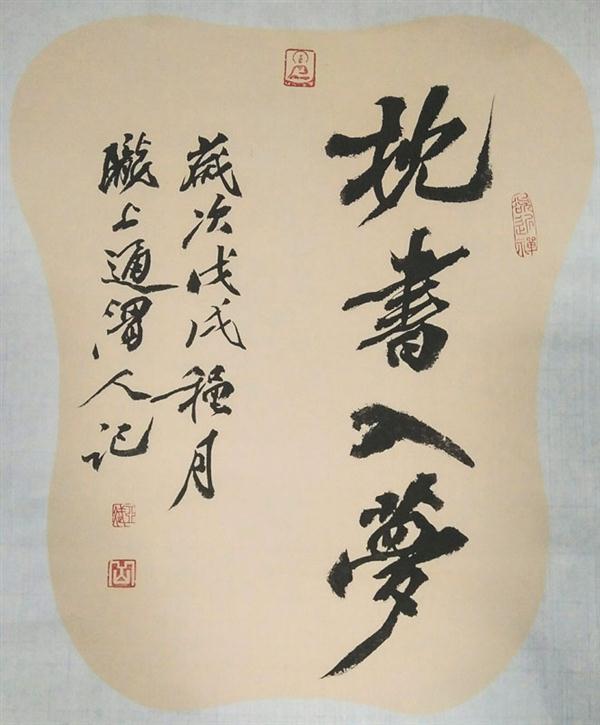 枕書入夢
歲次戊戌穐月
隴上通渭人記